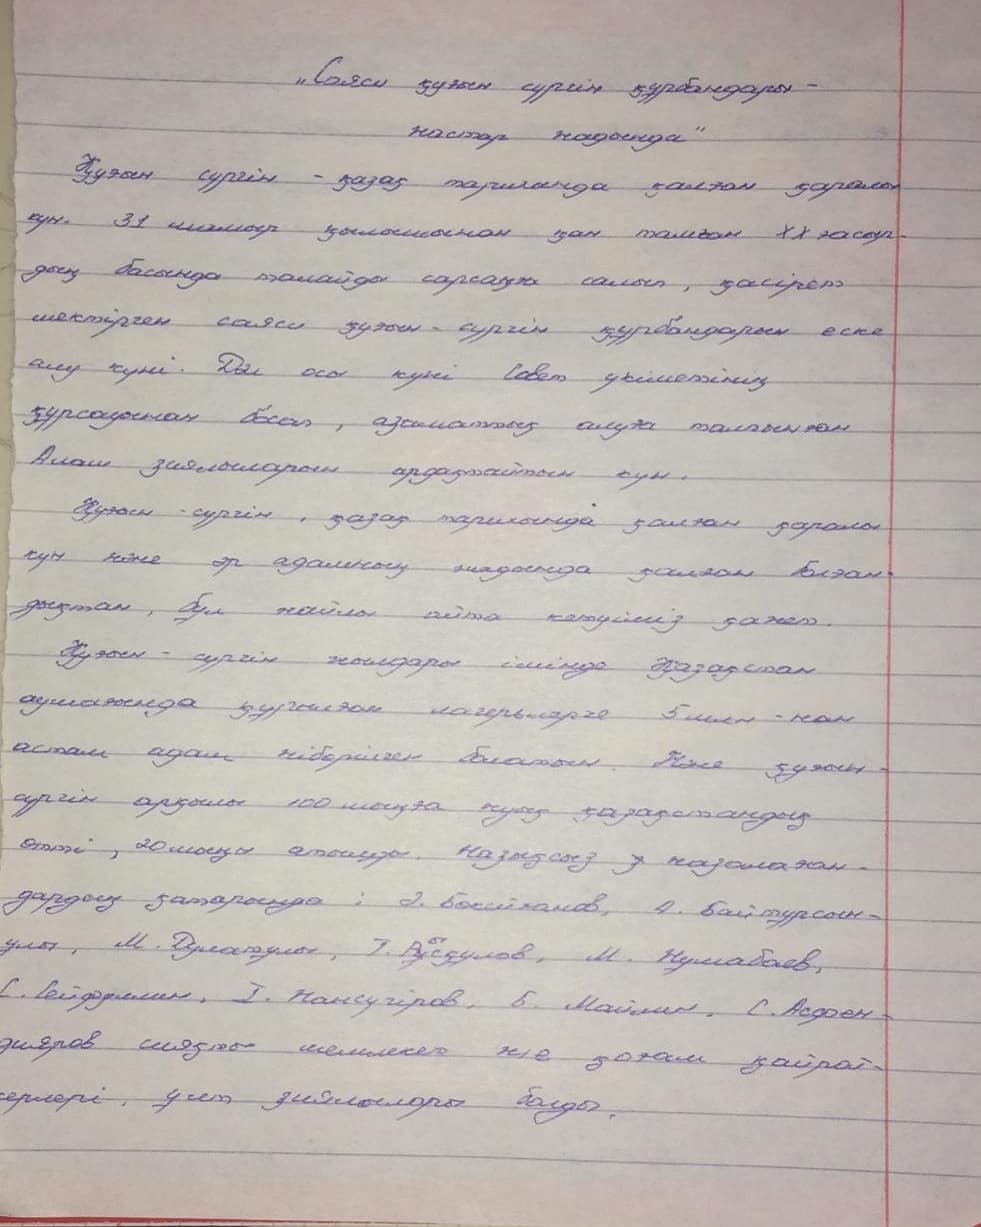 „Саяси қуғын сүргін құрбандары -
жастар жадында"
Қуғын сүргін - қазақ тарихында қалған қаралы
күн. 31 мамыр қылышынан қан тамған XX ғасыр-
дың басында талайды сарсаңға салып, қасірет
шектірген саяси қуғын-сүргін құрбандарын еске
алу күні. Дәл осы күні Совет үкіметінің
құрсауынан босап, азаматтық алуға талпынған
Алаш зиялыларын ардақтайтын күн.
Қуғын-сүргін, қазақ тарихында қалған қаралы
күн және әр адамның жадында қалған болған-
дықтан, бұл жайлы айта кетуіміз қажет.
Қуғын-сүргін жылдары ішінде Қазақстан
аумағында құрылған лагерьлерге 5 млн-нан
астам адам жіберілген болатын. Және қуғын-
сүргін арқылы 100 мыңға жуық қазақстандық
өтті, 20 мыңы атылды. Жазықсыз жазаланған-
дардың қатарында: Ә. Бөкейханов, А. Байтұрсын-
ұлы, М. Дулатұлы, Т. Рысқұлов, М. Жұмабаев,
С. Сейфуллин, І. Жансүгіров, Б. Майлин, С. Асфен-
дияров сияқты мемлекет және қоғам қайрат-
керлері, ұлт зиялылары болды.